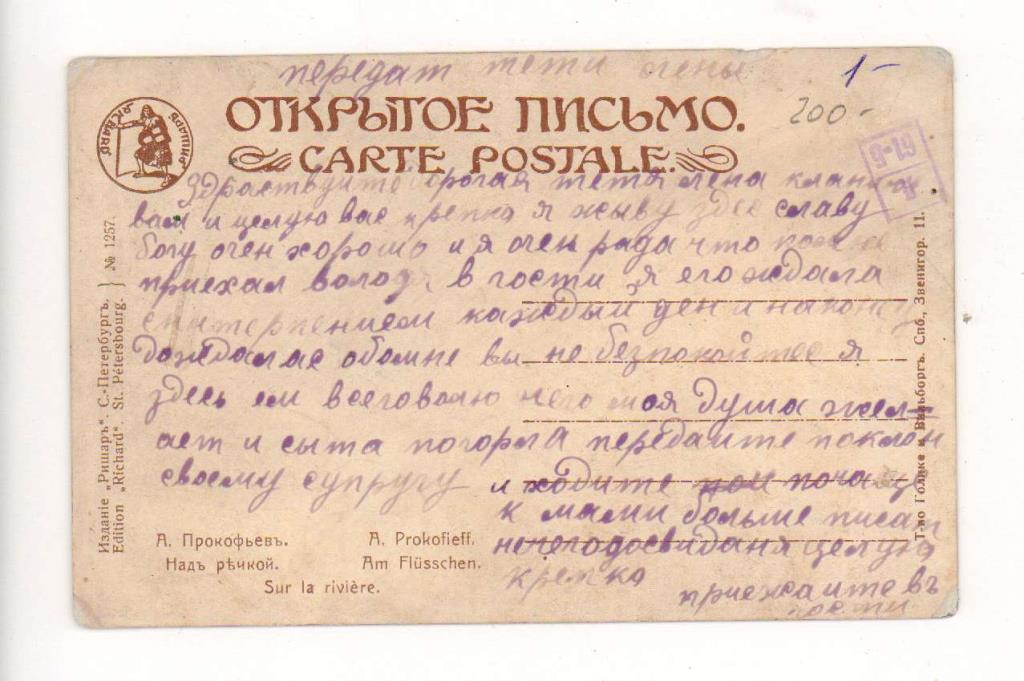 передат тети лены
1-
200-
ОТКРЫТОЕ ПИСЬМО.
CARTE POSTALE.
РИШАРЪ
RICHARD
9-19
Здраствуйте дорогая тетя лена
вам и целую вас крепко я живу здес славу
богу очен хорошо и я очен рада что
приехал володя в гости я его ждала
снитерпением каждый ден и наконец
дождалас обомне вы не безпокойтес я
здесь ем всеговолю чего моя душа жел-
ает и сыта погорла передаите поклон
своему супругу и ходите почаще
к мами больше писат
нечегодосвиданя целую
крепко
приежаите въ
гости
Изданіе „Ришаръ“. С.-Петербургъ.
Edition „Richard“. St. Pétersbourg.
№ 1257.
Т-во Голике и Вильборгъ. Спб., Звенигор. 11.
А. Прокофьевъ.
Надъ рѣчкой.
A. Prokofieff.
Am Flüsschen.
Sur la rivière.